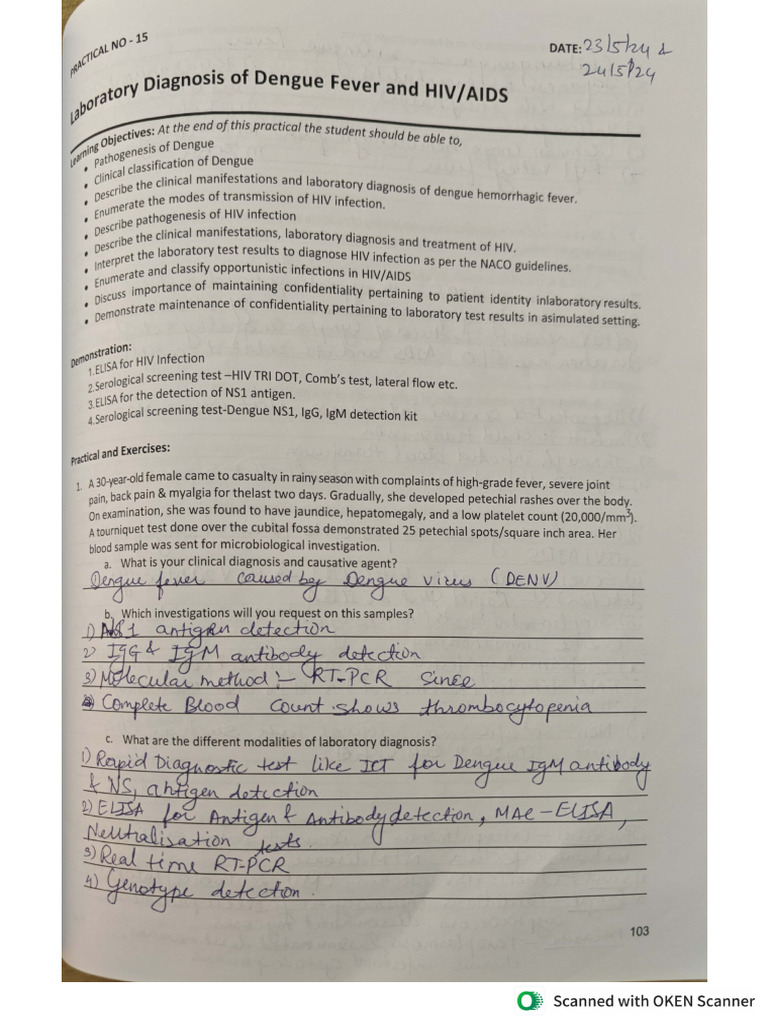 PRACTICAL NO - 15
DATE: 23/5/24 &
24/5/24
Laboratory Diagnosis of Dengue Fever and HIV/AIDS
Learning Objectives: At the end of this practical the student should be able to,
• Pathogenesis of Dengue
• Clinical classification of Dengue
• Describe the clinical manifestations and laboratory diagnosis of dengue hemorrhagic fever.
• Enumerate the modes of transmission of HIV infection.
• Describe pathogenesis of HIV infection
• Describe the clinical manifestations, laboratory diagnosis and treatment of HIV.
• Interpret the laboratory test results to diagnose HIV infection as per the NACO guidelines.
• Enumerate and classify opportunistic infections in HIV/AIDS
• Discuss importance of maintaining confidentiality pertaining to patient identity inlaboratory results.
• Demonstrate maintenance of confidentiality pertaining to laboratory test results in asimulated setting.
Demonstration:
1.ELISA for HIV Infection
2.Serological screening test –HIV TRI DOT, Comb's test, lateral flow etc.
3.ELISA for the detection of NS1 antigen.
4.Serological screening test-Dengue NS1, IgG, IgM detection kit
Practical and Exercises:
1. A 30-year-old female came to casualty in rainy season with complaints of high-grade fever, severe joint
pain, back pain & myalgia for thelast two days. Gradually, she developed petechial rashes over the body.
On examination, she was found to have jaundice, hepatomegaly, and a low platelet count (20,000/mm³).
A tourniquet test done over the cubital fossa demonstrated 25 petechial spots/square inch area. Her
blood sample was sent for microbiological investigation.
a. What is your clinical diagnosis and causative agent?
Dengue fever caused by Dengue virus (DENV)
b. Which investigations will you request on this samples?
1) NS1 antigen detection
2) IgG & IgM antibody detection
3) Molecular method :- RT-PCR Since
Complete Blood count shows thrombocytopenia
c. What are the different modalities of laboratory diagnosis?
1) Rapid Diagnostic test like ICT for Dengue IgM antibody
& NS1 antigen detection
2) ELISA for Antigen & Antibody detection, MAC-ELISA,
Neutralisation tests.
3) Real time RT-PCR
4) Genotype detection.
103
Scanned with OKEN Scanner